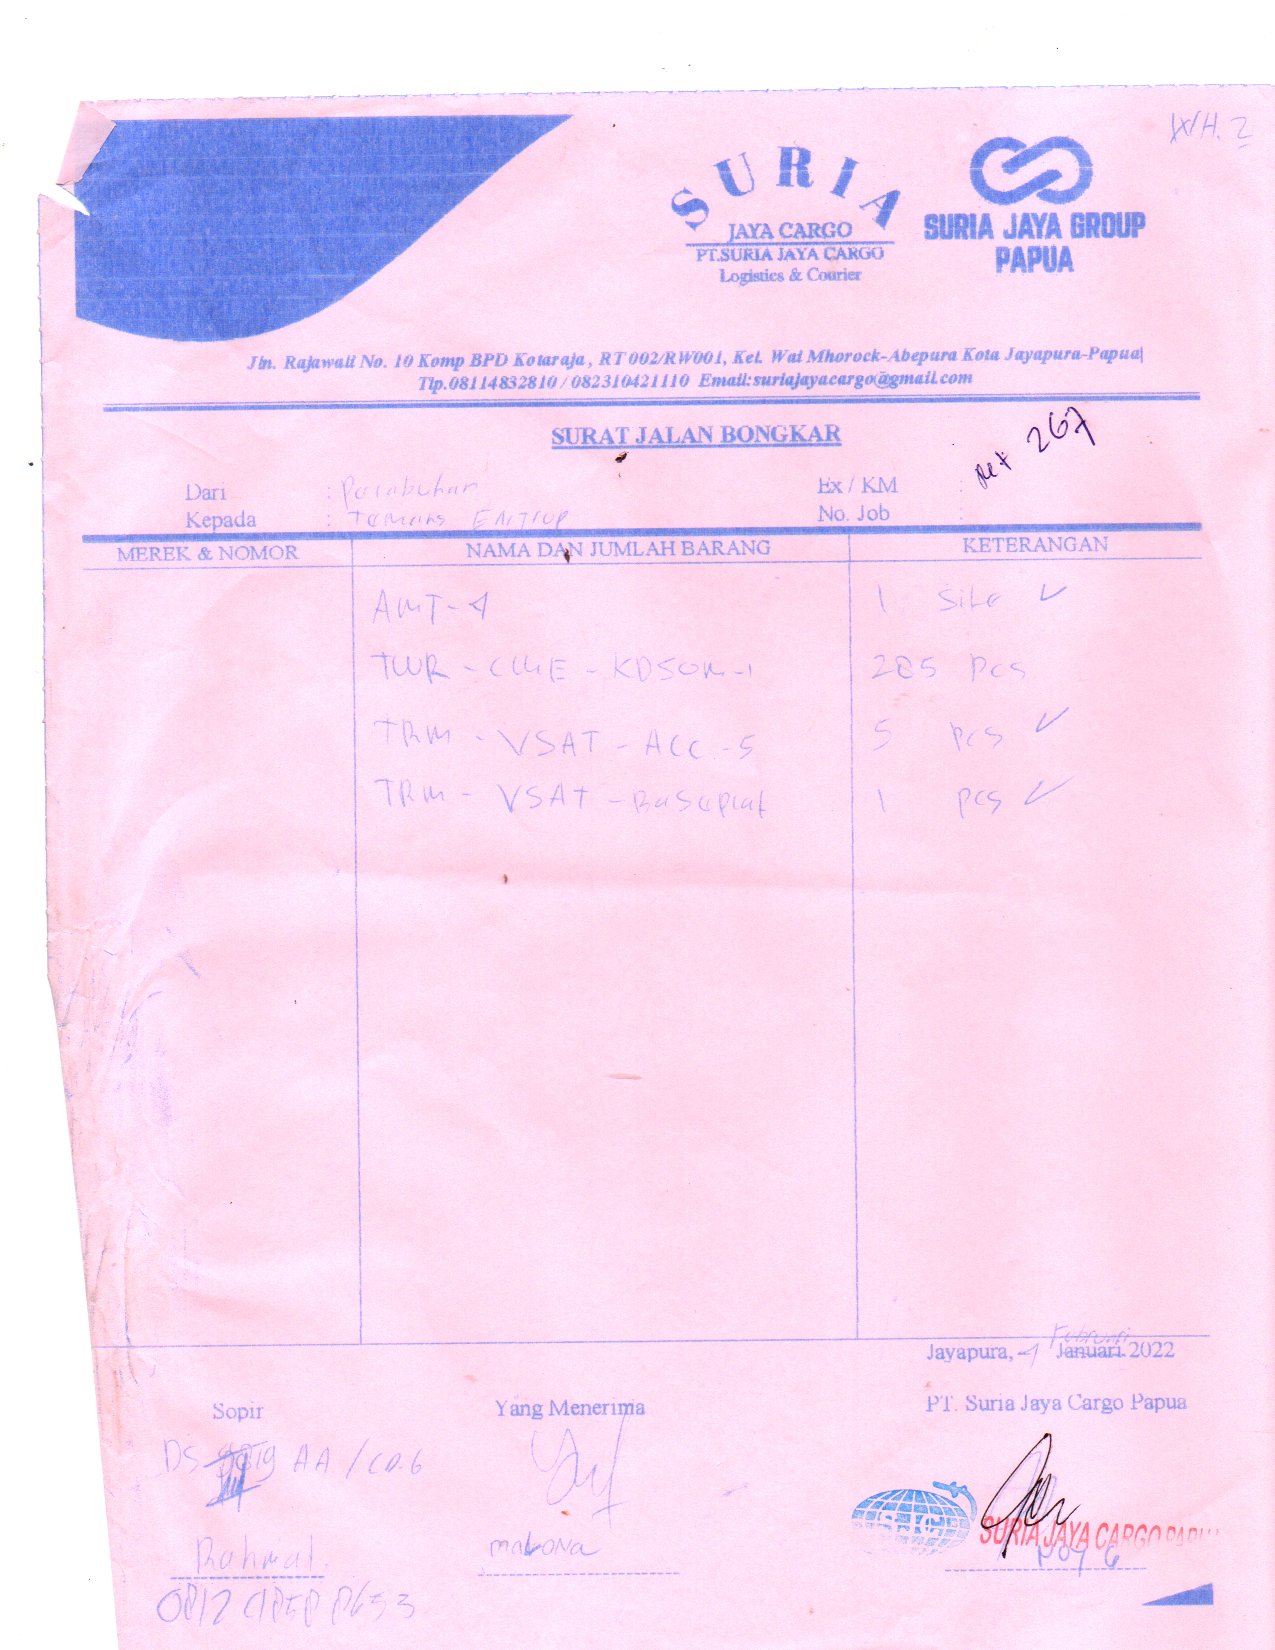 WH. 2
SURIA
JAYA CARGO
PT.SURIA JAYA CARGO
Logistics & Courier
SURIA JAYA GROUP
PAPUA
Jln. Rajawali No. 10 Komp BPD Kotaraja, RT 002/RW001, Kel. Wai Mhorock-Abepura Kota Jayapura-Papua
Tlp.08114832810 / 082310421110 Email:suriajayacargo@gmail.com
SURAT JALAN BONGKAR
267
Dari :
Ex / KM :
Kepada :
No. Job :
MEREK & NOMOR NAMA DAN JUMLAH BARANG KETERANGAN
AMT-4 1 Site ✓
TWR - CME - KDSOM-1 285 Pcs
TRM - VSAT - ACC -5 5 Pcs ✓
TRM - VSAT - Baseplat 1 pcs ✓
Februari
Jayapura, 4 Januari 2022
Sopir Yang Menerima PT. Suria Jaya Cargo Papua
DS AA /
SJC
SURIA JAYA CARGO PAPU
Rahmat.